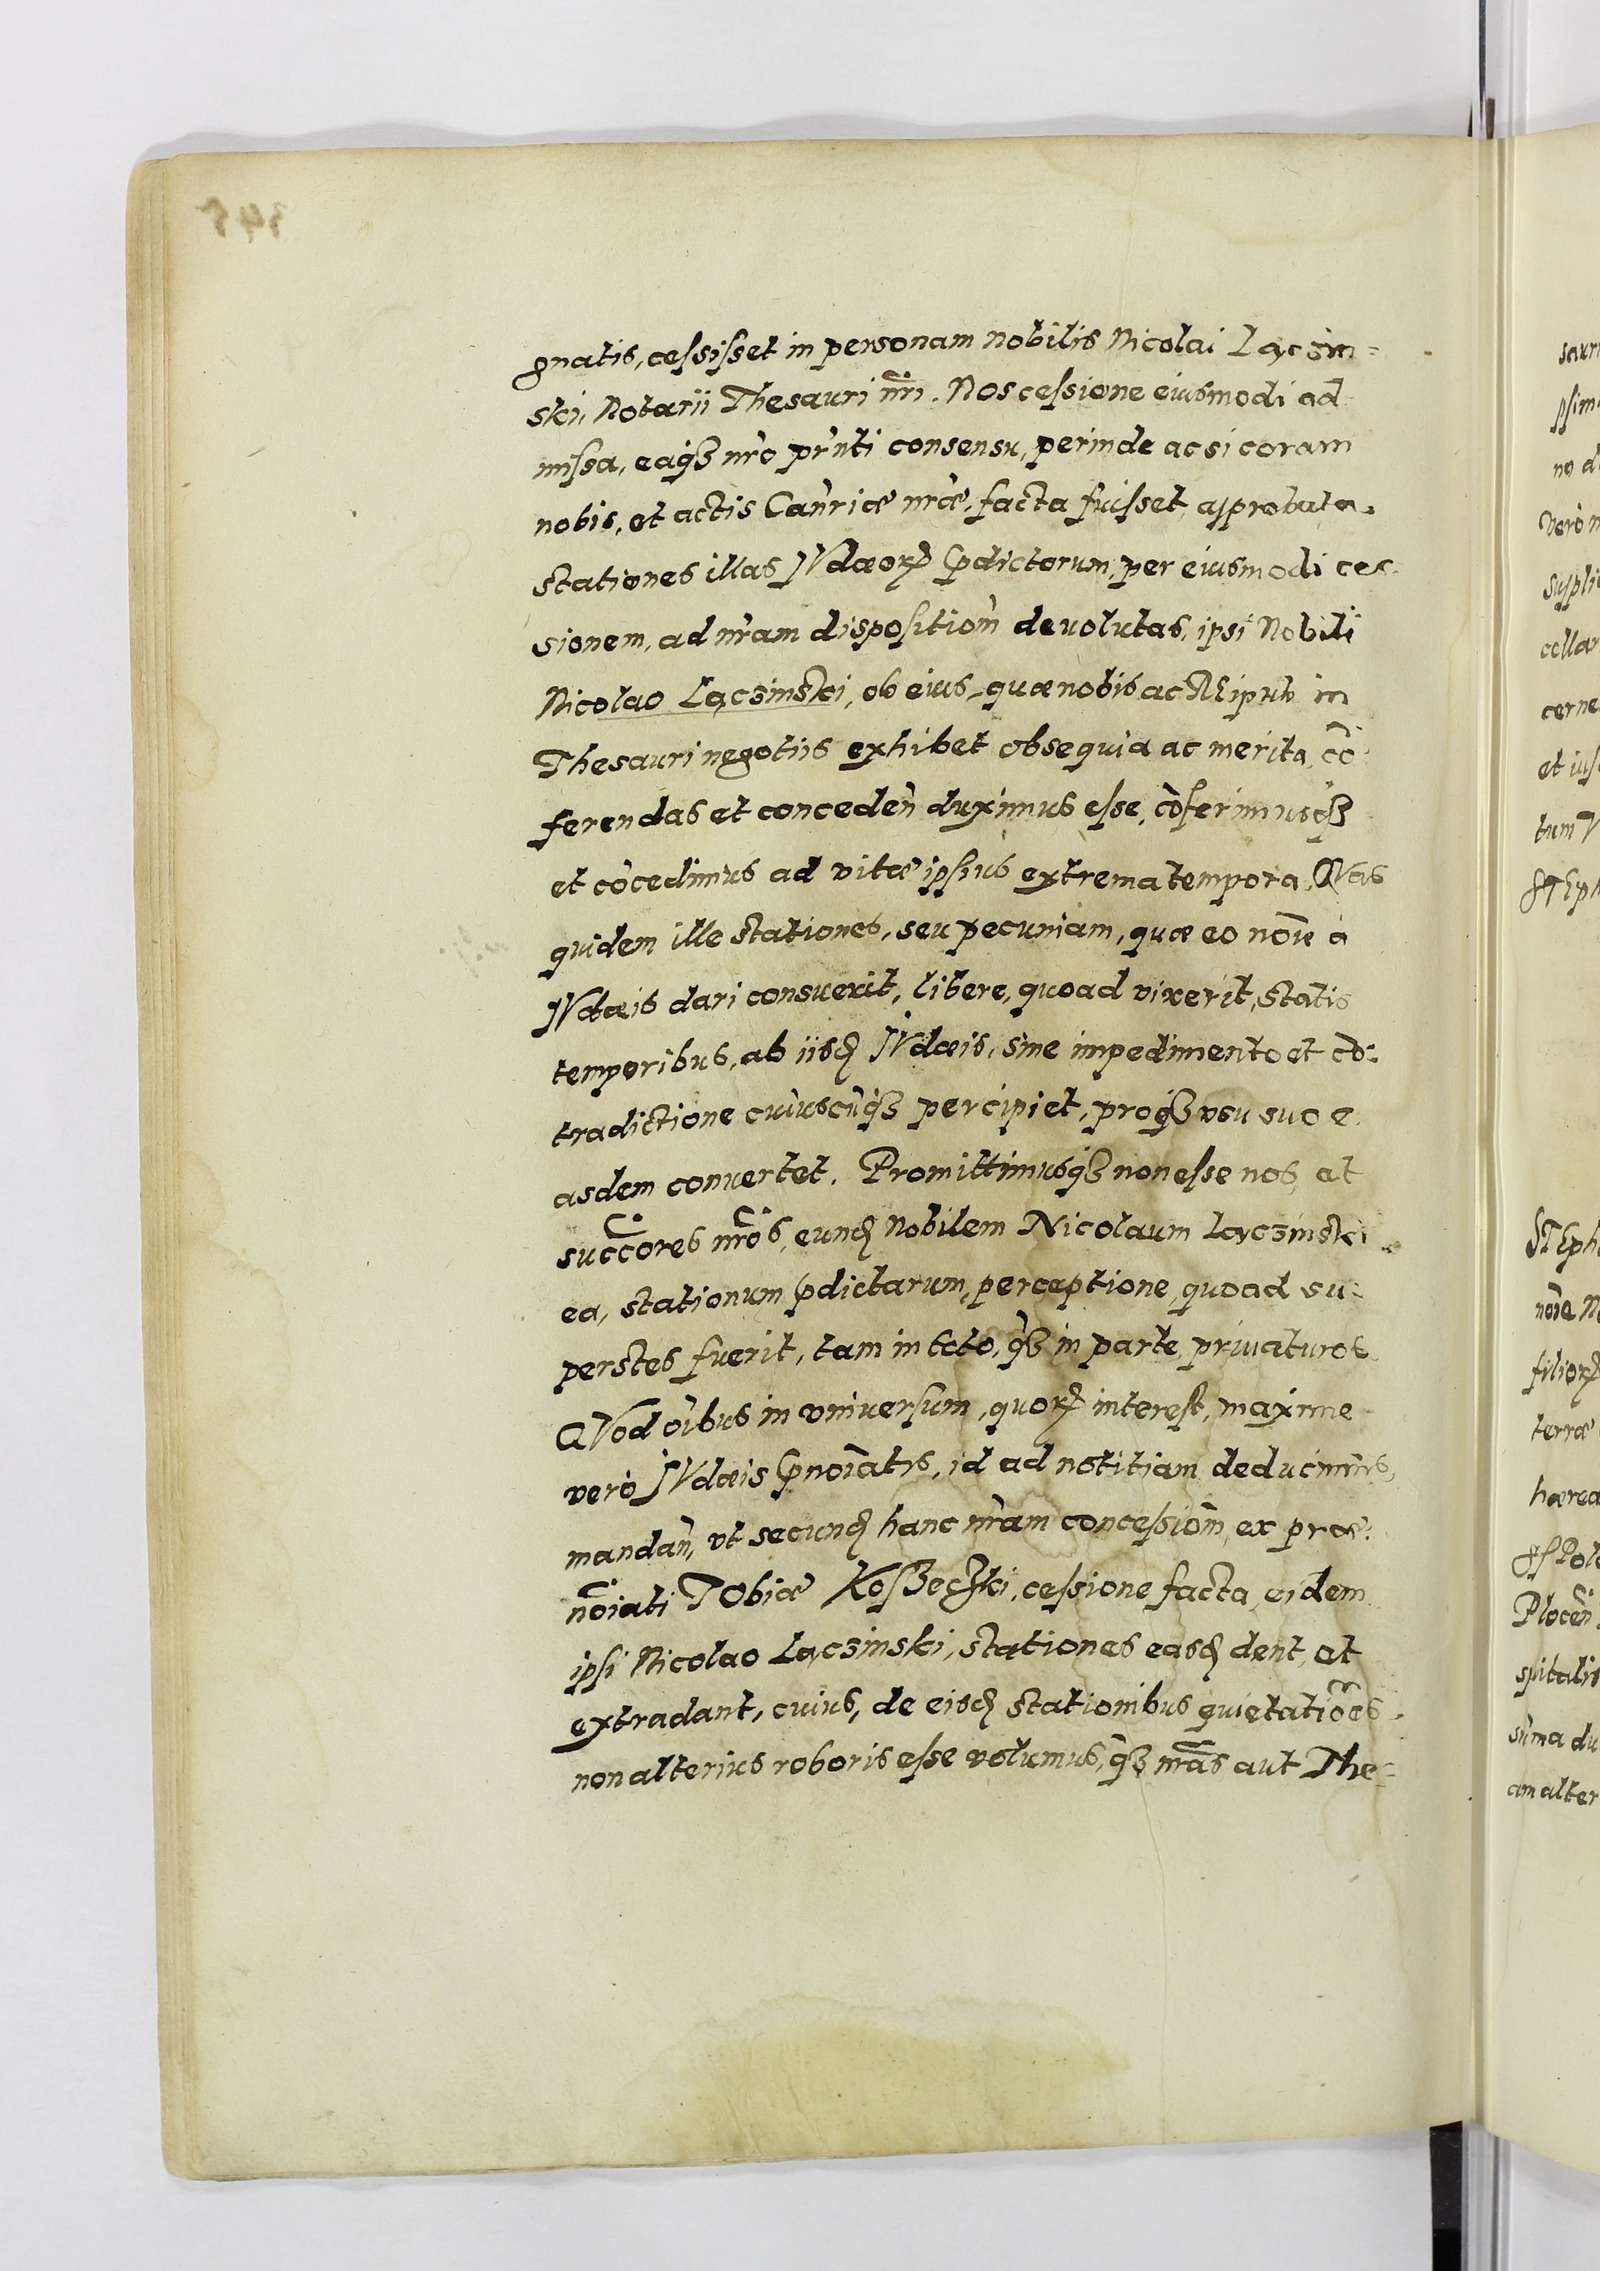 gnatis, cessisset in personam nobilis Nicolai Lącsin=
ski, Notarii Thesauri nr̃i. Nos cessione eiusmodi ad
missa, eaq́ꝫ nr̃o pr̃nti consensu, perinde ac si coram
nobis, et actis Cañriæ nr̃æ, facta fuisset, approbata.
stationes illas IVdæoꝝ p̃dictorum, per eiusmodi ces-
sionem, ad nr̃am dispositiom̃ deuolutas, ipsi Nobili
Nicolao Lącsinski, ob eius, quæ nobis ac REipub in
Thesauri negotiis exhibet obsequia ac merita, cõ
ferendas et conceden̄ duximus esse, cõferimusq́ꝫ
et cõcedimus ad vitæ ipsius extrema tempora. QVas
quidem ille stationes, seu pecuniam, quæ eo noĩe à
IVdæis dari consueuit, libere, quoad vixerit, statis
temporibus, ab iisđ IVdæis, sine impedimento et cõ:
tradictione cuiuscũq́ꝫ percipiet, proq́ꝫ vsu suo e
asdem conuertet. Promittimusq́ꝫ non esse nos, et
succ̃ores nr̃os, eunđ Nobilem Nicolaum Lącsinski
ea, stationum p̃dictarum, perceptione, quoad su:
perstes fuerit, tam in toto, q̃ꝫ in parte priuaturos
QVod oĩbus in vniuersum, quoꝝ interest, maxime
vero IVdæis p̃noĩatis, id ad notitiam deducimus,
mandañ, vt secunđ hanc nr̃am concessiom̃, ex præ:
noĩati TObiæ Koſzecʒki, cessione facta, eidem
ipsi Nicolao Lącsinski, stationes easđ dent, et
extradant, cuius, de eisđ stationibus quietatiões
non alterius roboris esse volumus, q̃ꝫ nr̃as aut The=